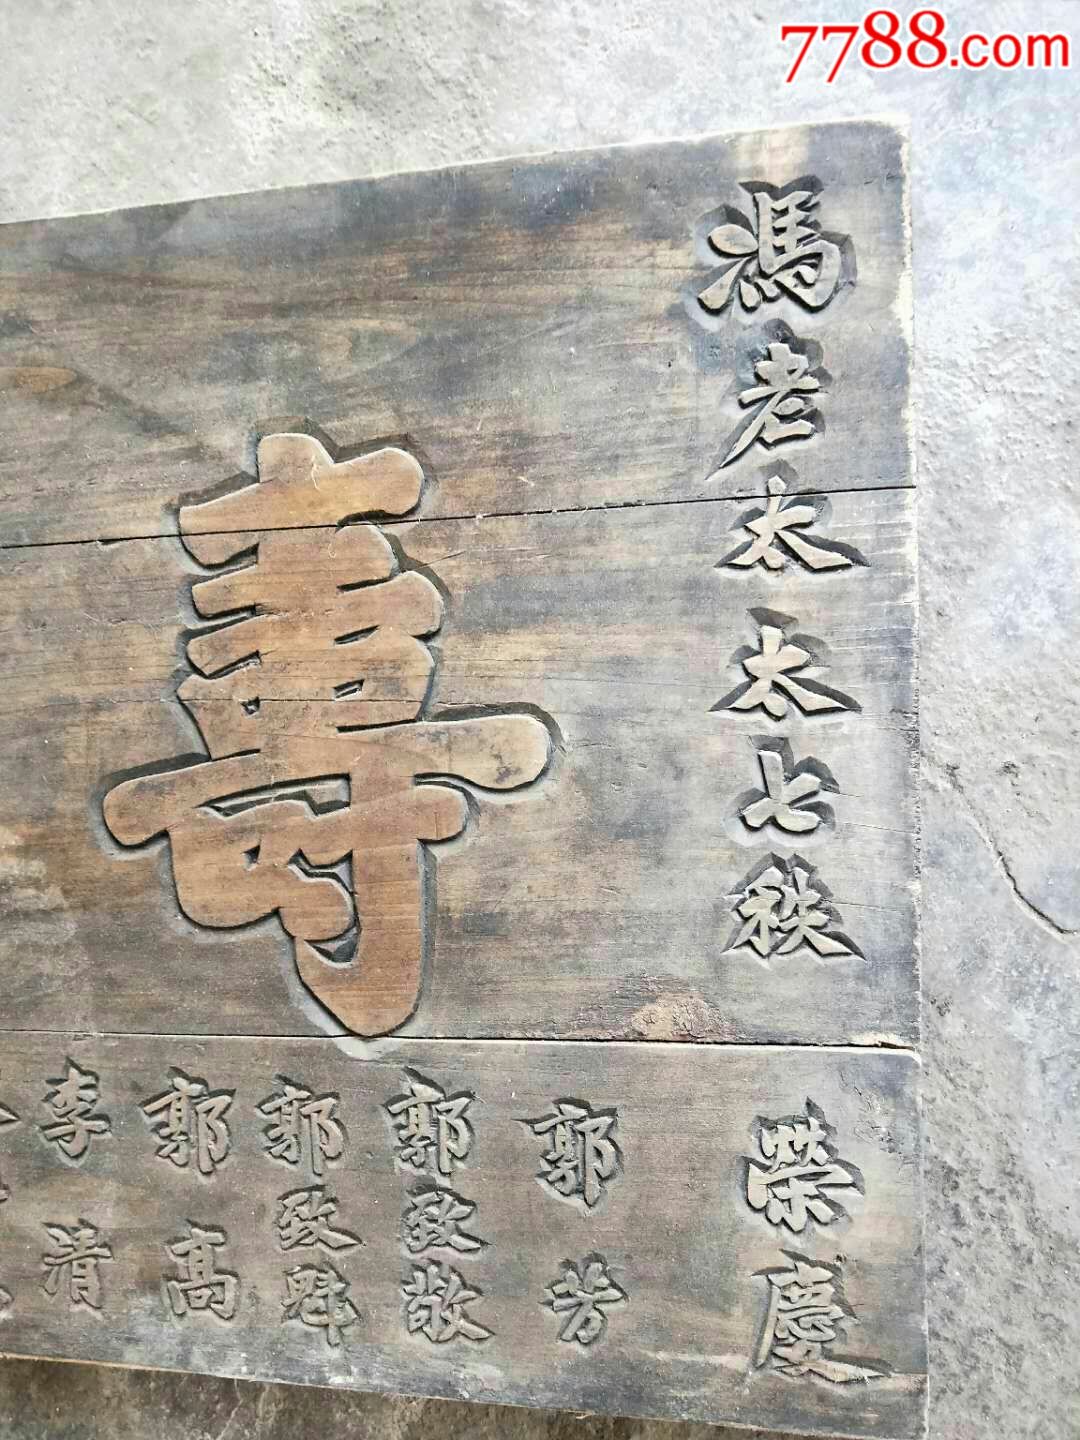 7788.com
馮老太太七秩榮慶
壽
郭芳
郭致敬
郭致魁
郭高
李清